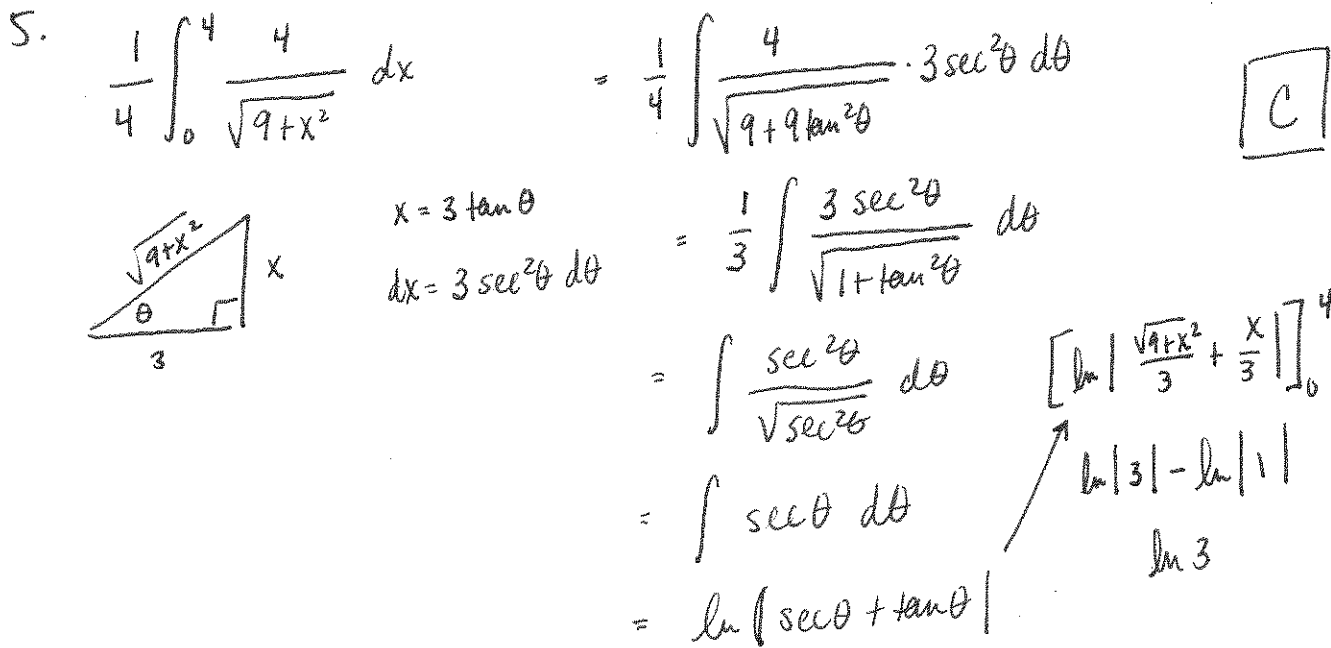 5. 1/4 ∫₀⁴ 4/√(9+x²) dx = 1/4 ∫ 4/√(9+9tan²θ) · 3sec²θ dθ
C
√(9+x²)
x
θ
3
x = 3 tan θ
dx = 3 sec²θ dθ
= 1/3 ∫ 3 sec²θ/√(1+tan²θ) dθ
= ∫ sec²θ/√(sec²θ) dθ
= ∫ sec θ dθ
= ln | sec θ + tan θ |
[ln | √(9+x²)/3 + x/3 |]₀⁴
ln |3| - ln |1|
ln 3